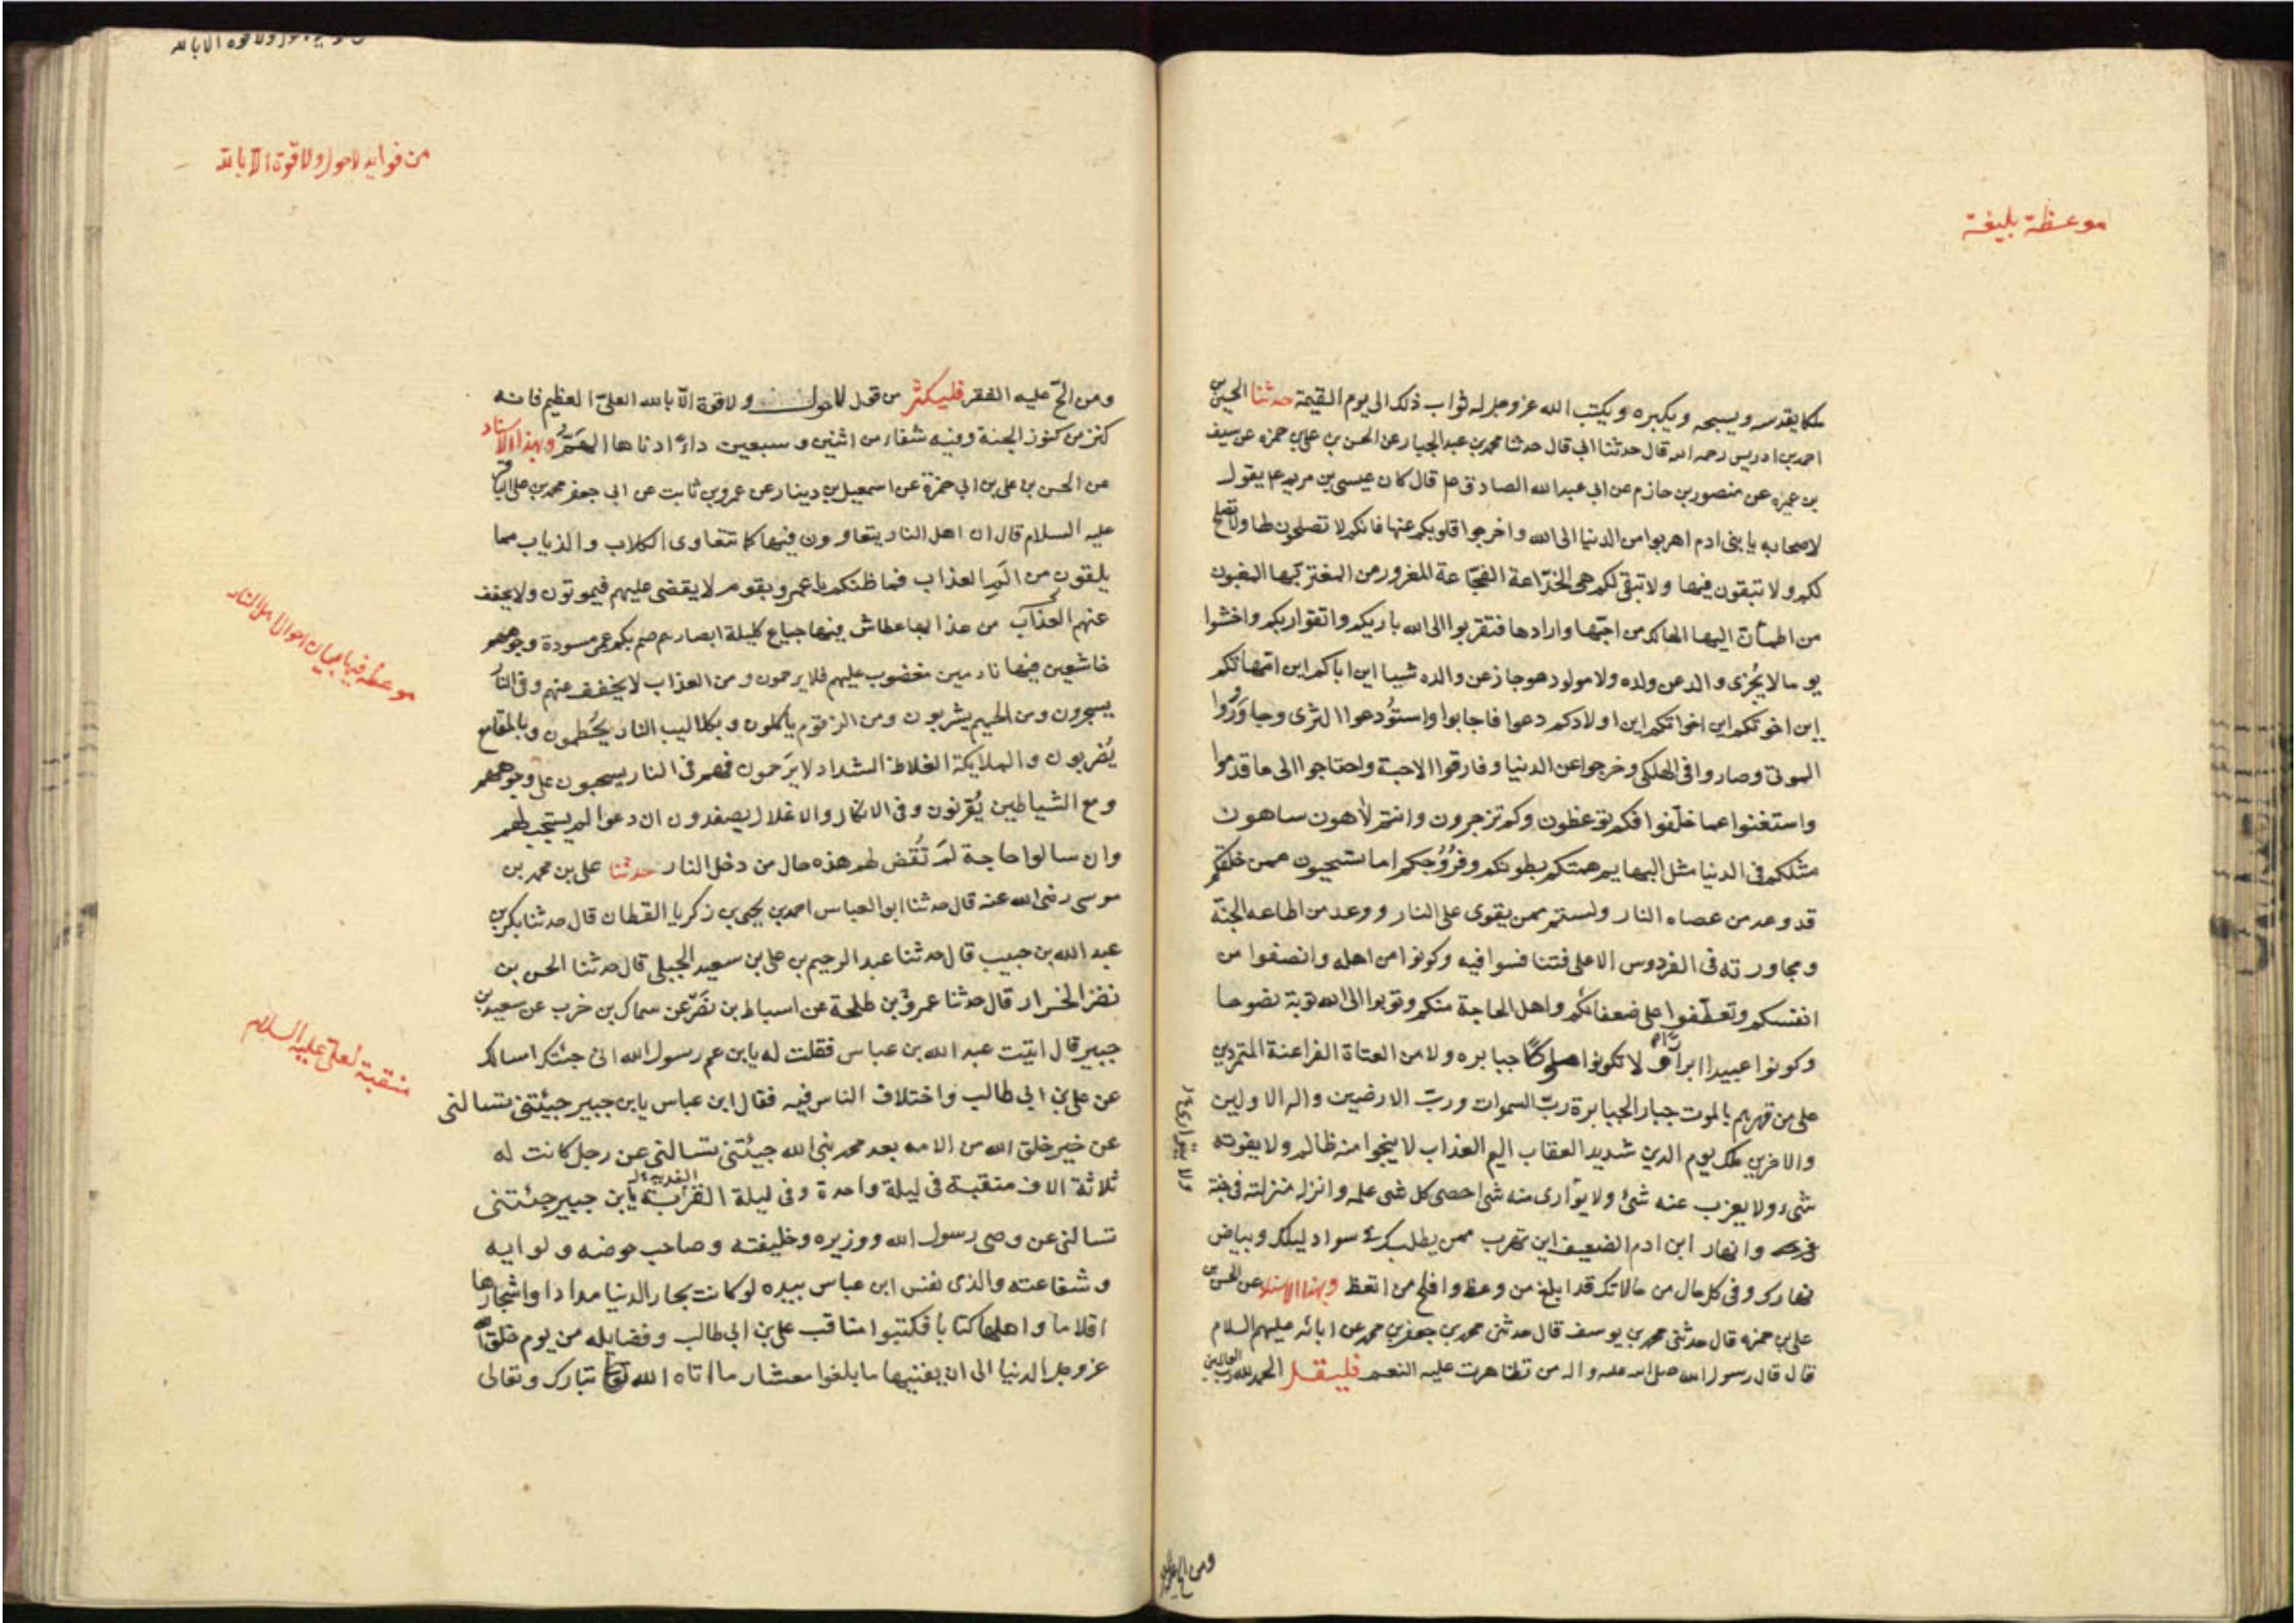 موعظة بليغة
ملكا يقدسه ويسبحه ويكبره ويكتب الله عزوجل له ثواب ذلك الى يوم القيمة حدثنا الحسين بن
احمد بن ادريس رحمه الله قال حدثنا ابي قال حدثنا محمد بن عبد الجبار عن الحسن بن علي بن حمزه عن سيف
بن عميره عن منصور بن حازم عن ابي عبدالله الصادق ع قال كان عيسى بن مريم ع يقول
لاصحابه يا بنى ادم اهربوا من الدنيا الى الله واخرجوا قلوبكم عنها فانكم لا تصلحون لها ولا تصلح
لكم ولا تبقون فيها ولا تبقى لكم هى الخدّاعة الفجّاعة المغرور من اغتر بها المغبون
من اطمأن اليها الهالك من احبّها وارادها فتقربوا الى الله باريكم واتقوا ربكم واخشوا
يوما لا يُجزى والد عن ولده ولا مولود هو جاز عن والده شييا اين اباكم اين امّهاتكم
اين اخوتكم اين اخواتكم اين اولادكم دعوا فاجابوا واستُودعوا الثرى وجاوَرُوا
الموتى وصاروا فى الهلكى وخرجوا عن الدنيا وفارقوا الاحبة واحتاجوا الى ما قدموا
واستغنوا عما خلّفوا فكم توعظون وكم تزجرون وانتم لاهون ساهون
مثلكم فى الدنيا مثل البهايم همتكم بطونكم وفُرُوُجكم اما تستحيون ممن خلقكم
قد وعد من عصاه النار ولستم ممن يقوى على النار ووعد من اطاعه الجنّة
ومجاورته فى الفردوس الاعلى فتنافسوا فيه وكونوا من اهله وانصفوا من
انفسكم وتعطّفوا على ضعفائكم واهل الحاجة منكم وتوبوا الى الله توبة نصوحا
وكونوا عبيدا ابرارا و لا تكونوا ملوكًا جبابره ولا من العتاة الفراعنة المتمردين
على من قهرهم بالموت جبار الجبابرة ربّ السموات وربّ الارضين واله الاولين
والاخرين ملك يوم الدين شديد العقاب اليم العذاب لا ينجوا منه ظالم ولا يفوته
شىء ولا يعزب عنه شىء ولا يوٓارى منه شىء احصى كل شى علمه وانزله منزلته فى جنة
ونار ابن ادم الضعيف اين تهرب ممن يطلبك فى سواد ليلك وبياض
نهارك وفى كل حال من حالاتك قد ابلغ من وعظ وافلح من اتعظ وبهذا الاسناد عن الحسن بن
على بن حمزه قال حدثنى محمد بن يوسف قال حدثنى محمد بن جعفر بن محمد عن ابائه عليهم السلام
قال قال رسول الله صلى الله عليه واله من تظاهرت عليه النعم فليقل الحمد لله رب العالمين
من فوايد لاحول ولا قوة الّا بالله
ومن الحّ عليه الفقر فليكثر من قول لا حول ولا قوة الّا بالله العلىّ العظيم فانه
كنز من كنوز الجنة وفيه شفاء من اثنين وسبعين داءً ادناها الهَمّ وبهذا الاسناد
عن الحسن بن على بن ابى حمزة عن اسمعيل بن دينار عن عمرو بن ثابت عن ابى جعفر محمد بن على الباقر
عليه السلام قال ان اهل النار يتعاوون فيها كما تتعاوى الكلاب والذياب مما
يلقون من اَلَيم العذاب فما ظنكم يا عمرو بقوم لا يقضى عليهم فيموتون ولا يخفف
عنهم العذاب من عذابها عطاش فيها جياع كليلة ابصارهم صم بكم عمى مسودة وجوههم
خاشعين فيها نادمين مغضوب عليهم فلا يرحمون ومن العذاب لا يخفف عنهم وفى النار
يسجرون ومن الحميم يشربون ومن الزقوم ياكلون وبكلاليب النار يُحَطمون وبالمقامع
يُضربون والملايكة الغلاظ الشداد لا يَرَحمون فهم فى النار يسحبون على وجوههم
ومع الشياطين يُقرَنون وفى الانكال والاغلال يصفدون ان دعوا لم يستجب لهم
وان سالوا حاجة لم تُقض لهم هذه حال من دخل النار حدثنا على بن محمد بن
موسى رضى الله عنه قال حدثنا ابو العباس احمد بن يحيى بن زكريا القطان قال حدثنا بكر بن
عبد الله بن حبيب قال حدثنا عبد الرحيم بن على بن سعيد الجبلى قال حدثنا الحسن بن
نضر الخزار قال حدثنا عمرو بن طلحة عن اسباط بن نصر عن سماك بن خرب عن سعيد بن
جبير قال اتيت عبد الله بن عباس فقلت له يا بن عم رسول الله انى جئتك اسالك
عن على بن ابى طالب واختلاف الناس فيه فقال ابن عباس يا بن جبير جيئتنى تسالنى
عن خير خلق الله من الامه بعد محمد نبى الله جيئتنى تسالنى عن رجل كانت له
ثلاثة الاف منقبة فى ليلة واحدة وفى ليلة القربة يا بن جبير جئتنى
تسالنى عن وصى رسول الله ووزيره وخليفته وصاحب حوضه ولوايه
وشفاعته والذى نفس ابن عباس بيده لو كانت بحار الدنيا مدادا واشجارها
اقلاما واهلها كتابا فكتبوا مناقب على بن ابى طالب وفضايله من يوم خلق الله
عزوجل الدنيا الى ان يفنيها ما بلغوا معشار ما اتاه الله تبارك وتعالى
موعظه فيها بيان احوال اهل النار
منقبة لعلىّ عليه السلام
ومن الح عليه